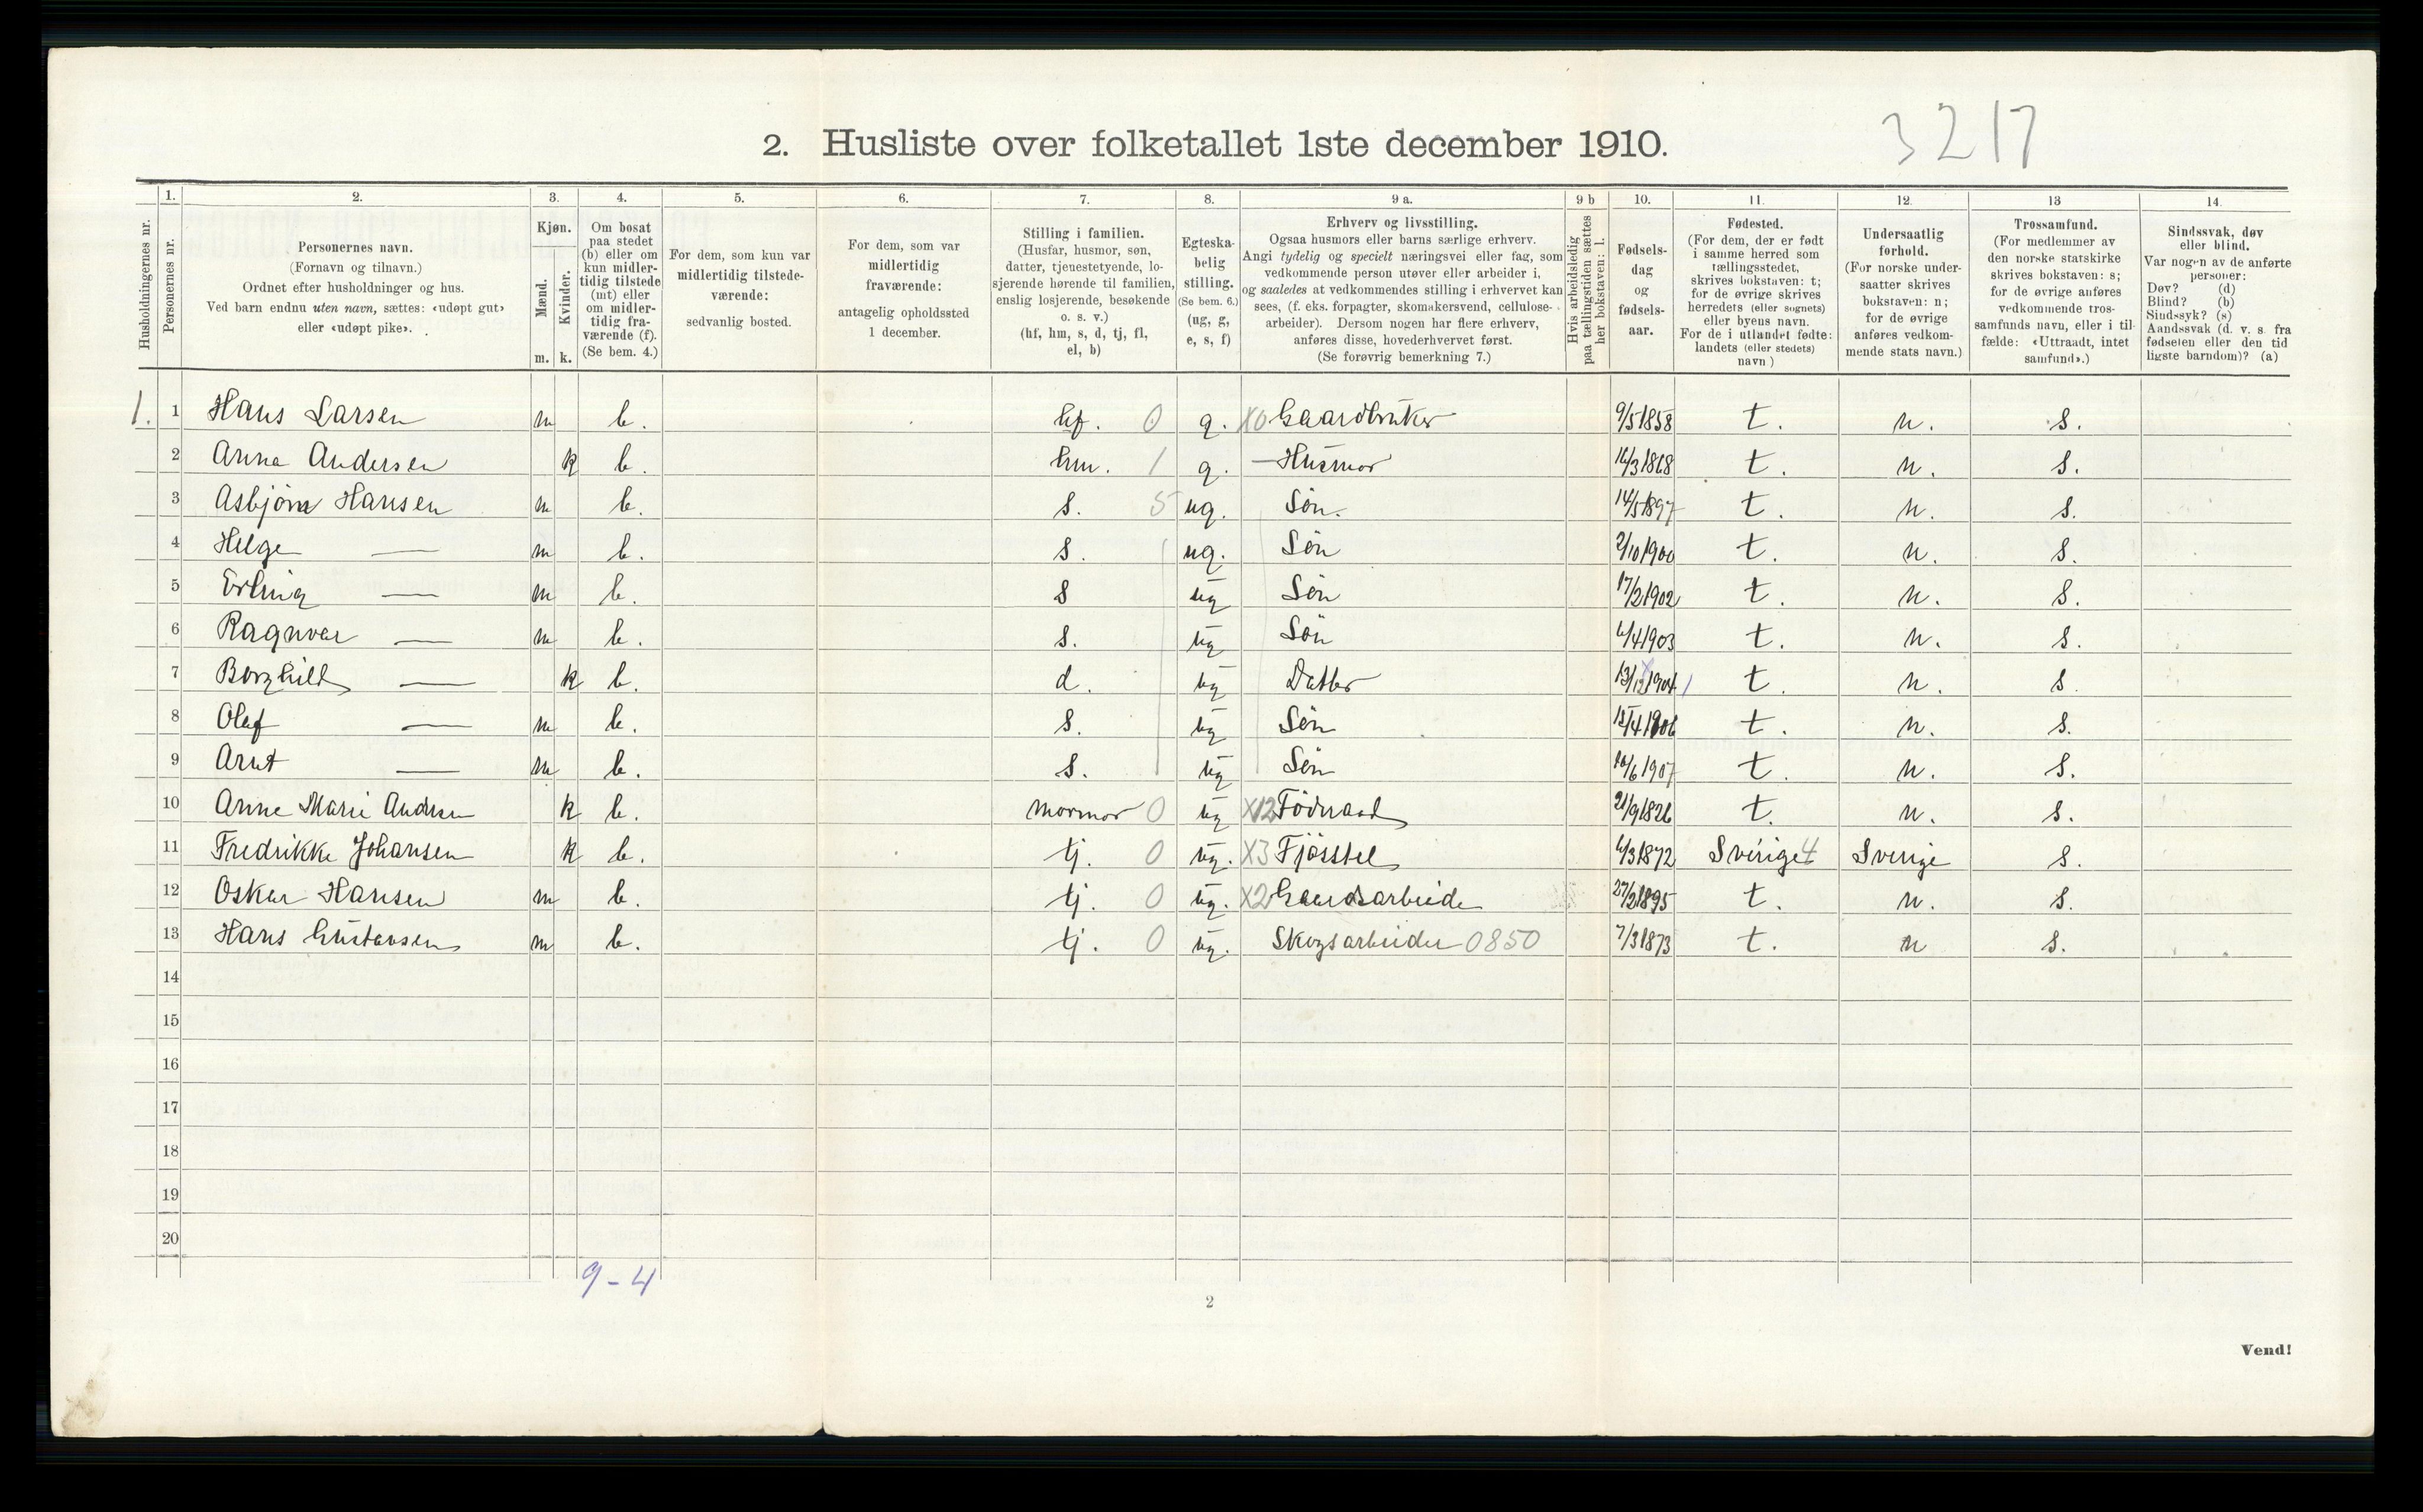 3217
2. Husliste over folketallet 1ste december 1910.
Husholdningernes nr.
1.
Personernes nr.
2.
Personernes navn.
(Fornavn og tilnavn.)
Ordnet efter husholdninger og hus.
Ved barn endnu uten navn, sættes: «udøpt gut»
eller «udøpt pike».
3.
Kjøn.
Mænd.
Kvinder.
m. k.
4.
Om bosat
paa stedet
(b) eller om
kun midler-
tidig tilstede
(mt) eller
om midler-
tidig fra-
værende (f).
(Se bem. 4.)
5.
For dem, som kun var
midlertidig tilstede-
værende:
sedvanlig bosted.
6.
For dem, som var
midlertidig
fraværende:
antagelig opholdssted
1 december.
7.
Stilling i familien.
(Husfar, husmor, søn,
datter, tjenestetyende, lo-
sjerende hørende til familien,
enslig losjerende, besøkende
o. s. v.)
(hf, hm, s, d, tj, fl,
el, b)
8.
Egteska-
belig
stilling.
(Se bem. 6.)
(ug, g,
e, s, f)
9 a.
Erhverv og livsstilling.
Ogsaa husmors eller barns særlige erhverv.
Angi tydelig og specielt næringsvei eller fag, som
vedkommende person utøver eller arbeider i,
og saaledes at vedkommendes stilling i erhvervet kan
sees, (f. eks. forpagter, skomakersvend, cellulose-
arbeider). Dersom nogen har flere erhverv,
anføres disse, hovederhvervet først.
(Se forøvrig bemerkning 7.)
9 b
Hvis arbeidsledig
paa tællingstiden sættes
her bokstaven: l.
10.
Fødsels-
dag
og
fødsels-
aar.
11.
Fødested.
(For dem, der er født
i samme herred som
tællingsstedet,
skrives bokstaven: t;
for de øvrige skrives
herredets (eller sognets)
eller byens navn.
For de i utlandet fødte:
landets (eller stedets)
navn)
12.
Undersaatlig
forhold.
(For norske under-
saatter skrives
bokstaven: n;
for de øvrige
anføres vedkom-
mende stats navn.)
13
Trossamfund.
(For medlemmer av
den norske statskirke
skrives bokstaven: s;
for de øvrige anføres
vedkommende tros-
samfunds navn, eller i til-
fælde: «Uttraadt, intet
samfund».)
14.
Sindssvak, døv
eller blind.
Var nogen av de anførte
personer:
Døv? (d)
Blind? (b)
Sindssyk? (s)
Aandssvak (d. v. s. fra
fødselen eller den tid
ligste barndom)? (a)
1. 1 Hans Larsen m b. hf. 0 g. X0 Gaardbruker 9/5 1858 t. n. s.
2 Anna Andersen k b. hm. 1 g. — Husmor 16/3 1868 t. n. s.
3 Asbjörn Hansen m b. s. 5 ug. Sön. 14/5 1897 t. n. s.
4 Helge — m b. s. ug. Sön 2/10 1900 t. n. s.
5 Erling — m b. s ug Sön 17/2 1902 t. n. s.
6 Ragnvar — m b. s. ug Sön 6/4 1903 t. n. s.
7 Borghild — k b. d. ug Datter 13/12 1904 1 t. n. s.
8 Olaf — m b. s. ug Sön 18/4 1906 t. n. s.
9 Arnt — m b. s. ug Sön 10/6 1907 t. n. s.
10 Anne Marie Andrsen k b. mormor 0 ug X12 Föderaad 21/9 1826 t. n. s.
11 Fredrikke Johansen k b. tj. 0 ug. X3 Fjösstel 6/3 1872 Sverige 4 Sverige s.
12 Oskar Hansen m b. tj. 0 ug. X2 Gaardsarbeide 27/2 1895 t. n. s.
13 Hans Gustavsen m b. tj. 0 ug. Skogsarbeider 0850 7/3 1873 t. n s.
14
15
16
17
18
19
20
9-4
2
Vend!